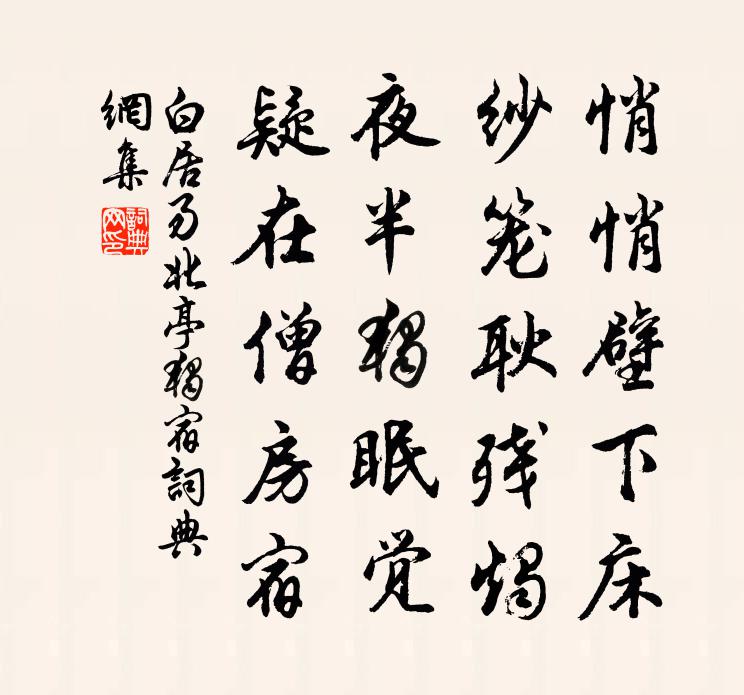 悄悄壁下床
纱笼耿残烛
夜半独眠觉
疑在僧房宿
白居易北亭独宿詞典
網集
詞典
网印